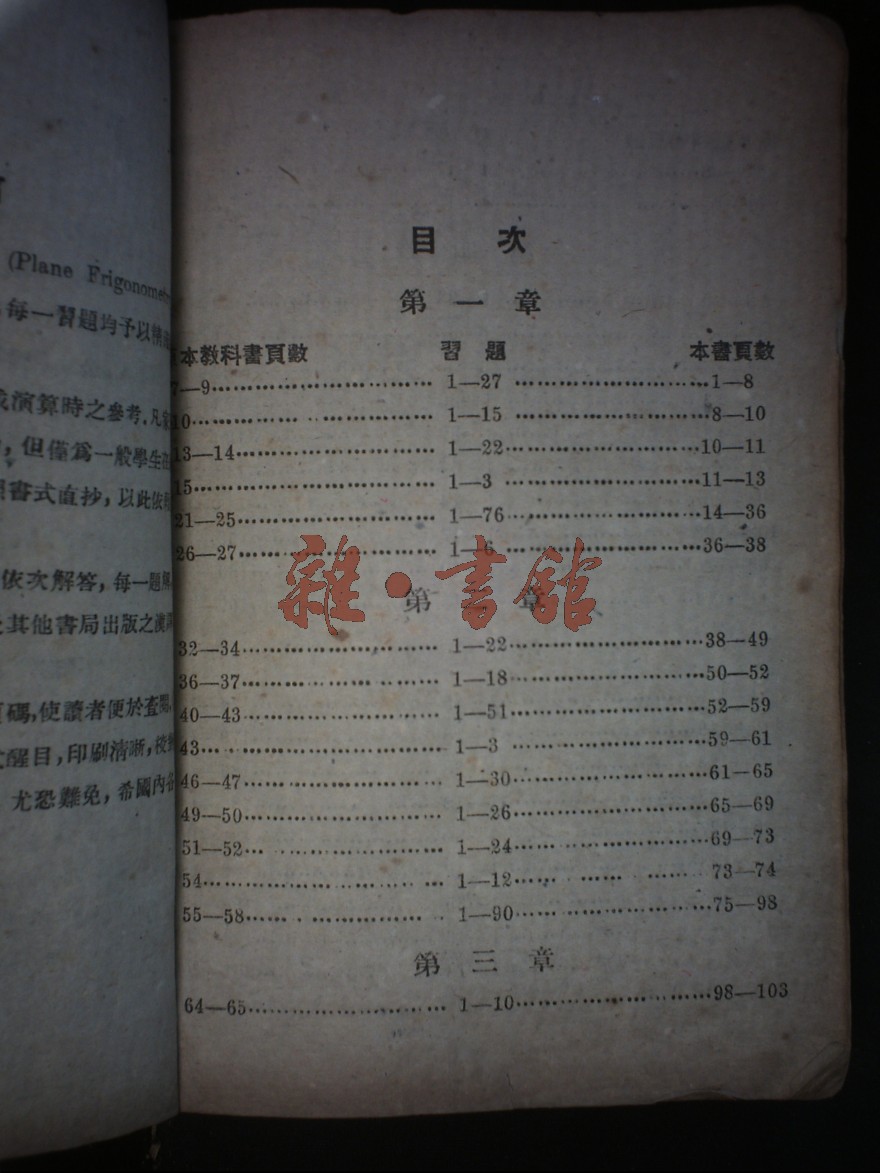 (Plane Frigonomet
每一習題均予以
演算時之參考,凡
但僅爲一般學生
書式直抄,以此依
依次解答,每一題
其他書局出版之
碼,使讀者便於查閱,
醒目,印刷清晰,校
尤恐難免,希國內
目 次
第 一 章
本教科書頁數 習 題 本書頁數
7—9 1—27 1—8
10 1—15 8—10
13—14 1—22 10—11
15 1—3 11—13
21—25 1—76 14—36
26—27 1—6 36—38
雜·書館
第 二 章
32—34 1—22 38—49
36—37 1—18 50—52
40—43 1—51 52—59
43 1—3 59—61
46—47 1—30 61—65
49—50 1—26 65—69
51—52 1—24 69—73
54 1—12 73—74
55—58 1—90 75—98
第 三 章
64—65 1—10 98—103